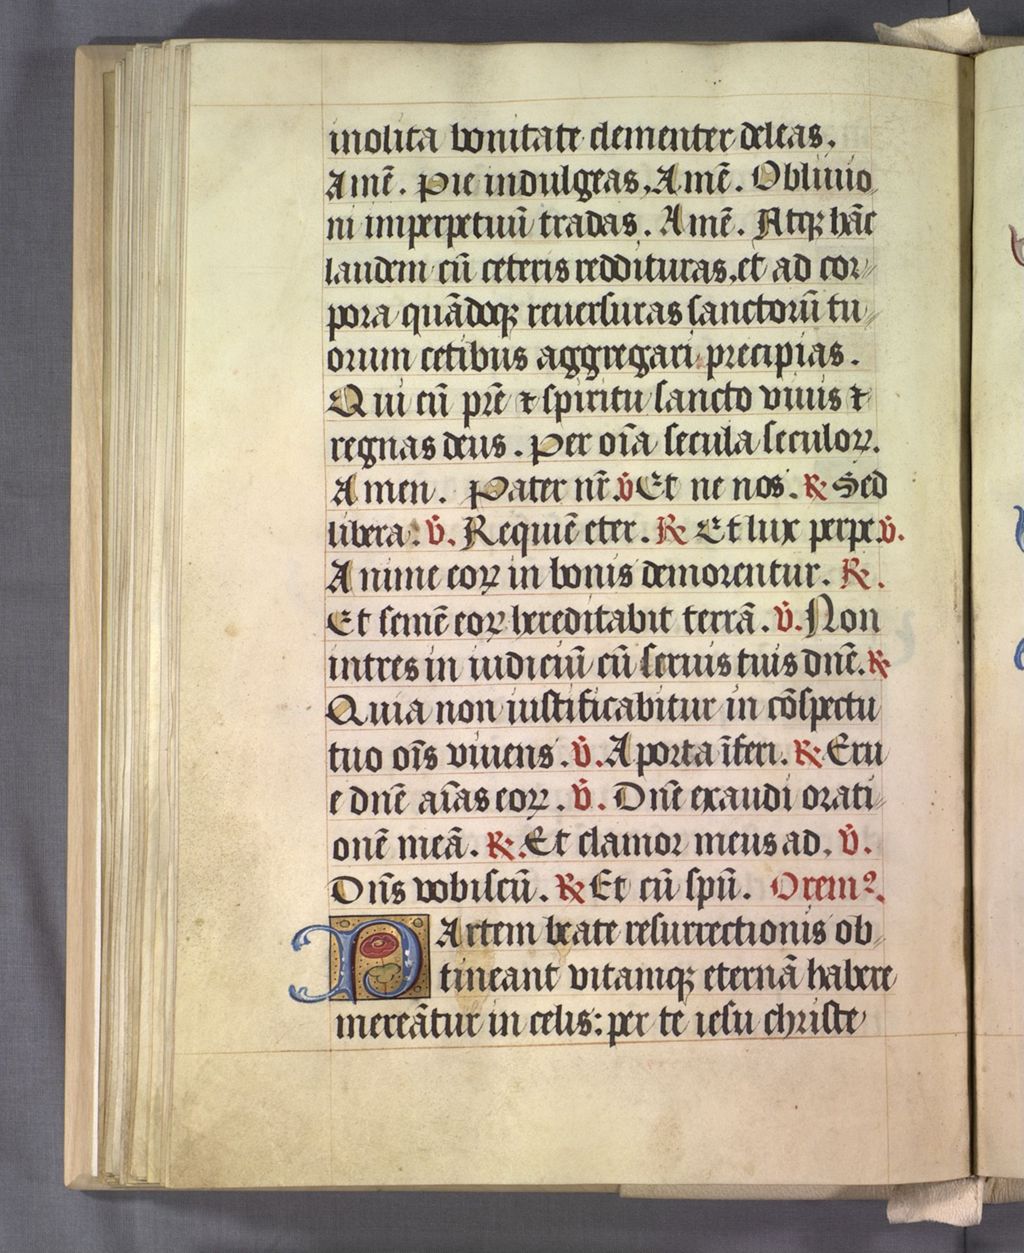 inolita bonitate clementer deleas.
Amē. Pie indulgeas, Amē. Obliuio
ni imperpetuū tradas. Amē. Atqꝫ hāc
laudem cū ceteris reddituras, et ad cor⸗
pora quādoqꝫ reuersuras sanctorū tu⸗
orum cetibus aggregari precipias.
Qui cū prē ⁊ spiritu sancto viuis ⁊
regnas deus. Per oīa secula seculoꝝ.
Amen. Pater nr̄. ℣ Et ne nos. ℟ Sed
libera. ℣. Requiē eter. ℟ Et lux perpe. ℣.
Anime eoꝝ in bonis demorentur. ℟.
Et semē eoꝝ hereditabit terrā. ℣. Non
intres in iudiciū cū seruis tuis dnē. ℟
Quia non iustificabitur in cōspectu
tuo oīs viuens. ℣. A porta īferi. ℟. Eru
e dnē aīas eoꝝ. ℣. Dnē exaudi orati⸗
onē meā. ℟. Et clamor meus ad. ℣.
Dn̄s vobiscū. ℟ Et cū spū. Oremꝰ.
PArtem beate resurrectionis ob⸗
tineant vitamqꝫ eternā habere
mereātur in celis: per te iesu christe